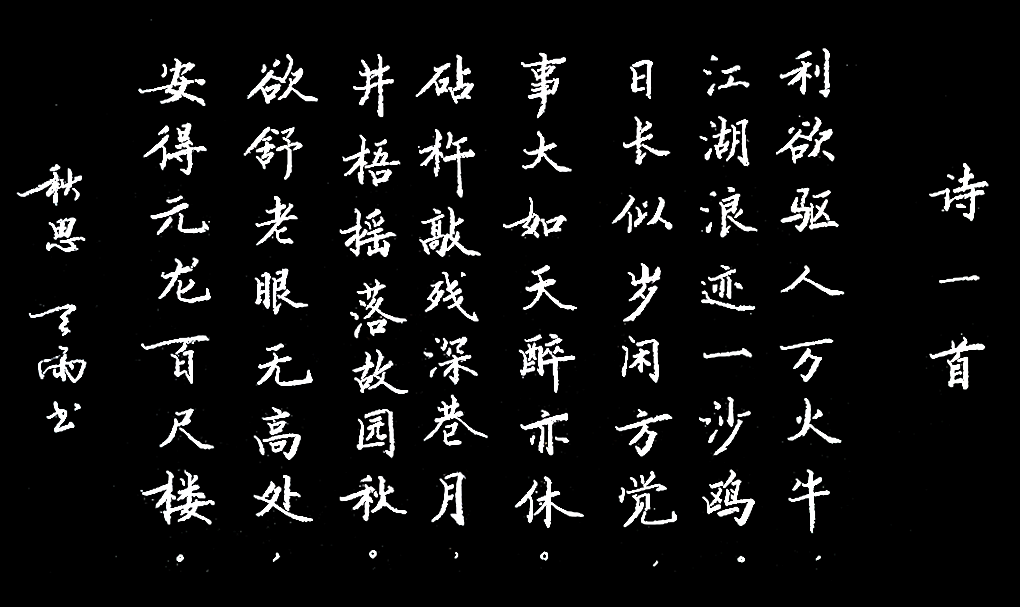 诗一首
利欲驱人万火牛，
江湖浪迹一沙鸥。
日长似岁闲方觉，
事大如天醉亦休。
砧杵敲残深巷月，
井梧摇落故园秋。
欲舒老眼无高处，
安得元龙百尺楼。
秋思 天雨书